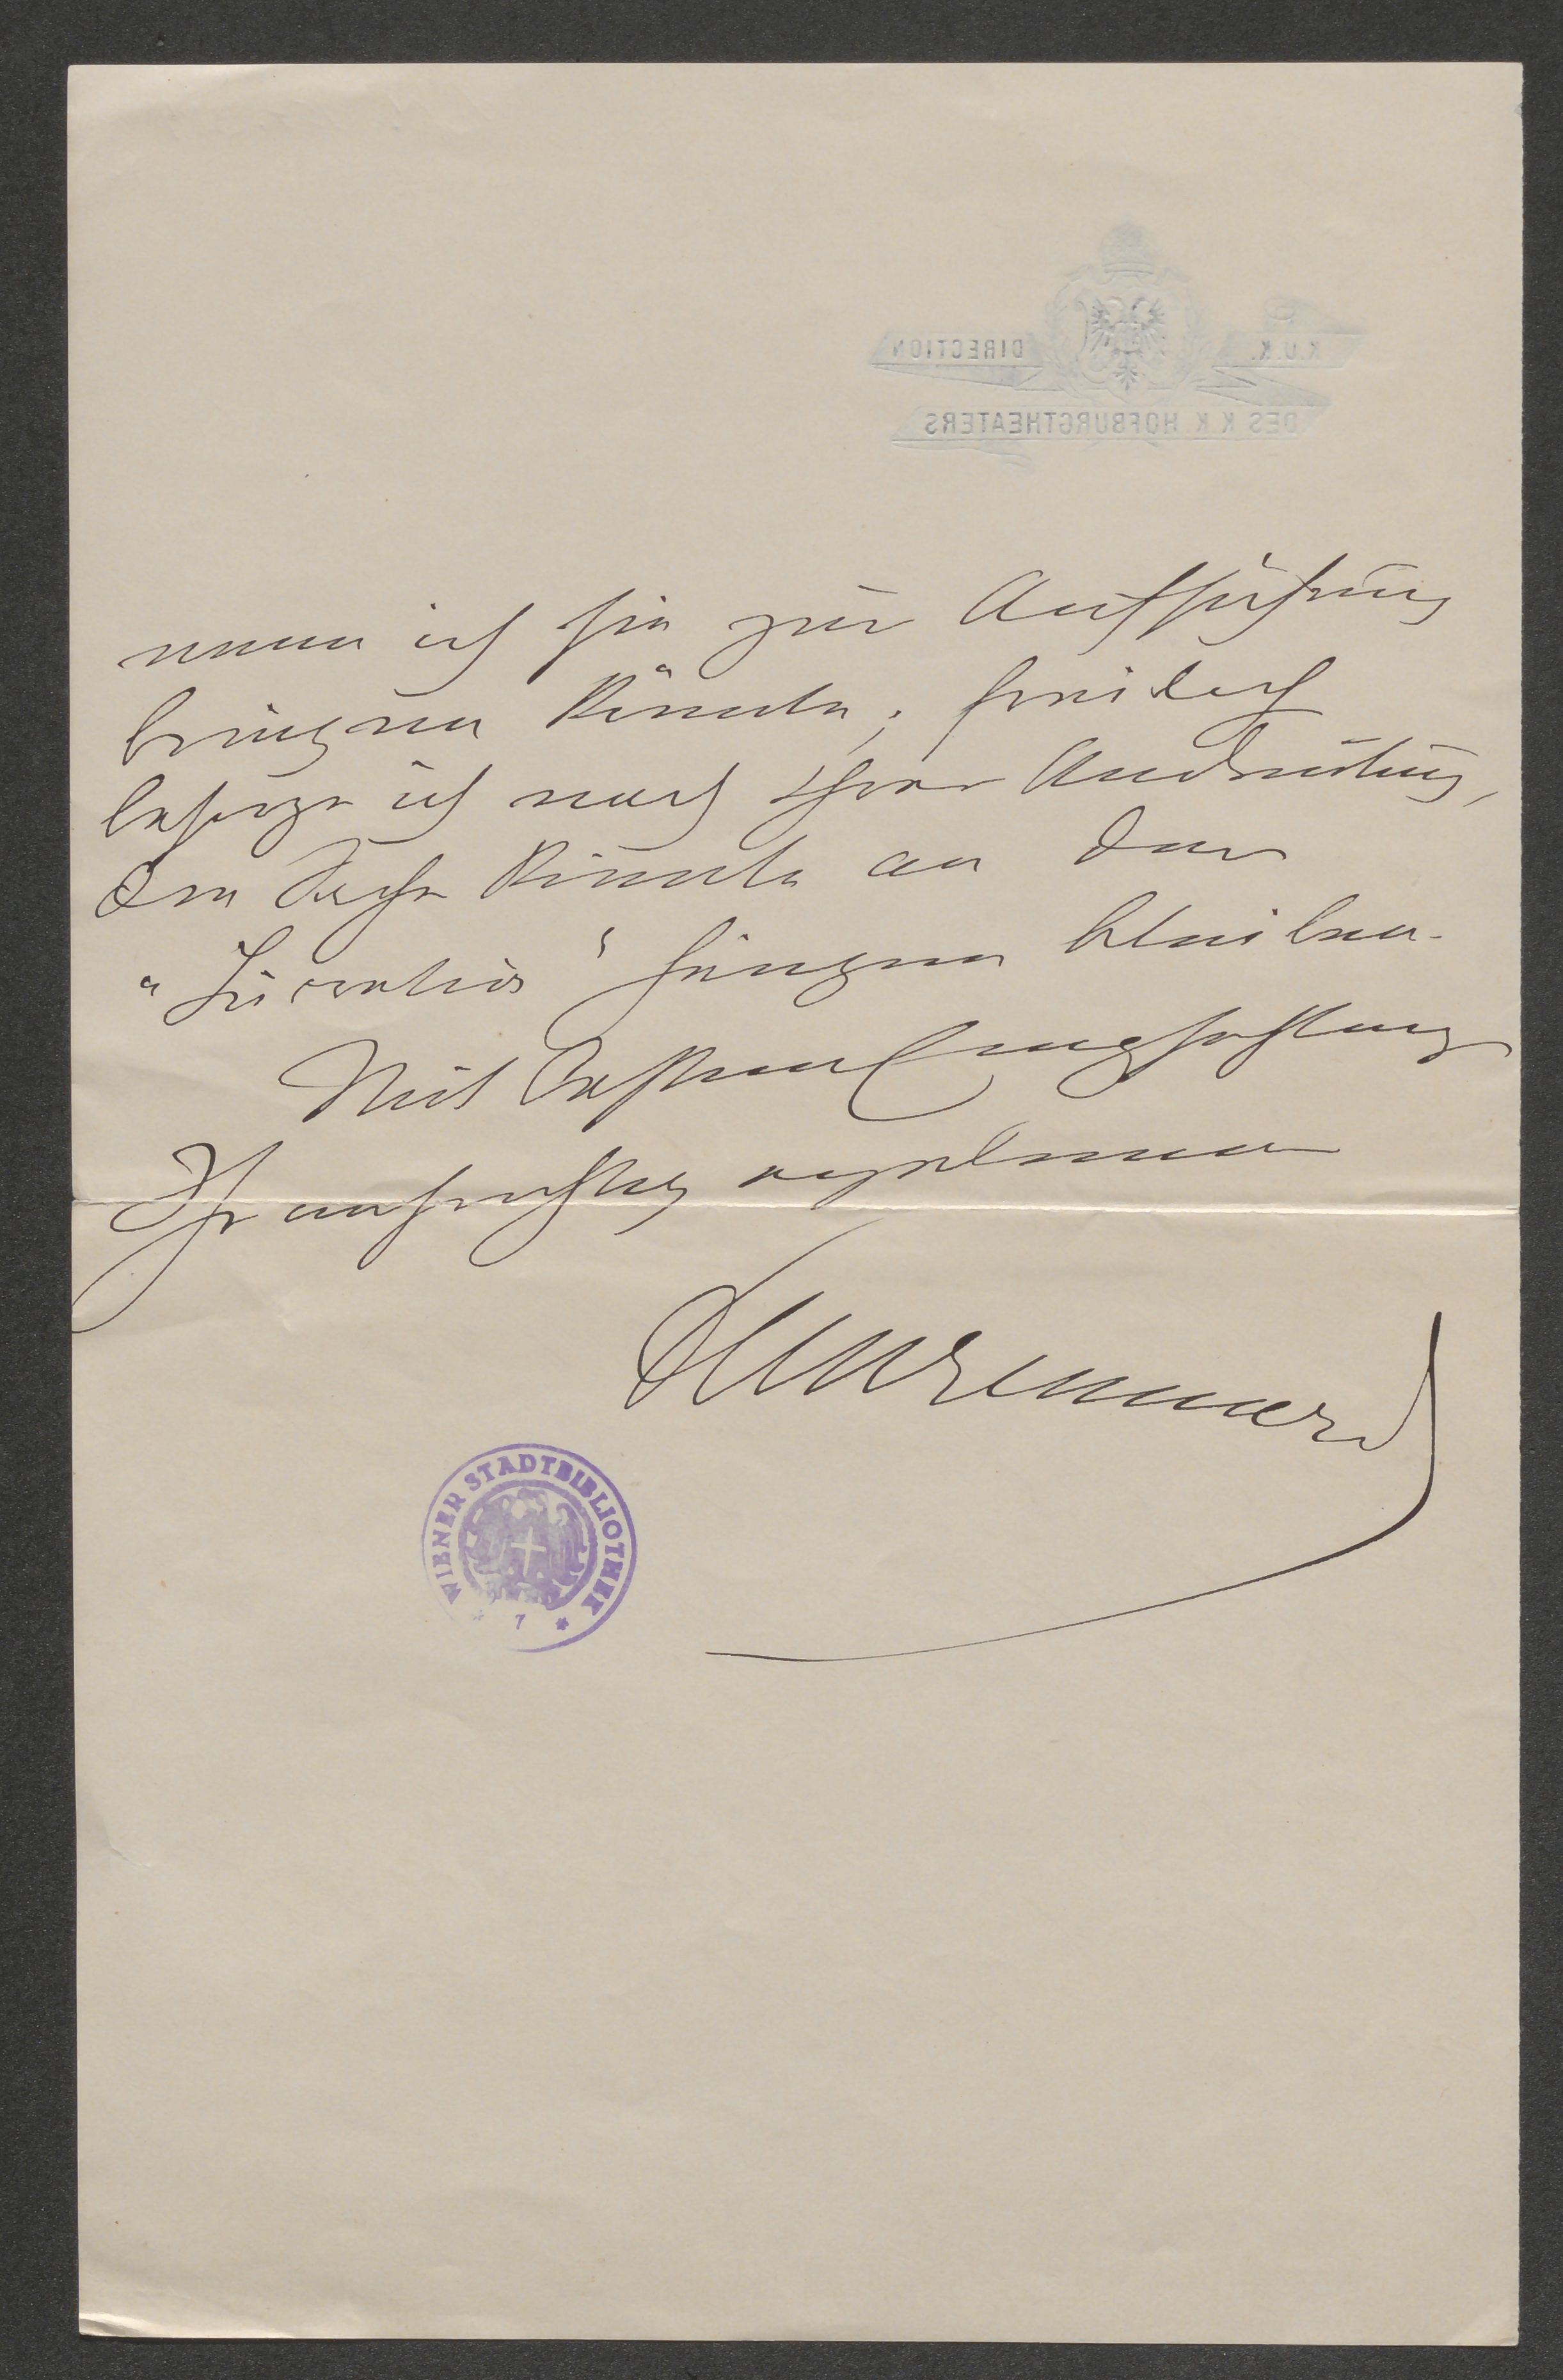 K.U.K. DIRECTION
DES K.K. HOFBURGTHEATERS
wenn ich sie zur Aufführung
bringen könnte; freilich
besorge ich nach Ihrer Andeutung,
die Sache könnte an dem
hängen bleiben.
Mit bester Empfehlung
Ihr aufrichtig ergebener
WIENER STADTBIBLIOTHEK
* 7 *